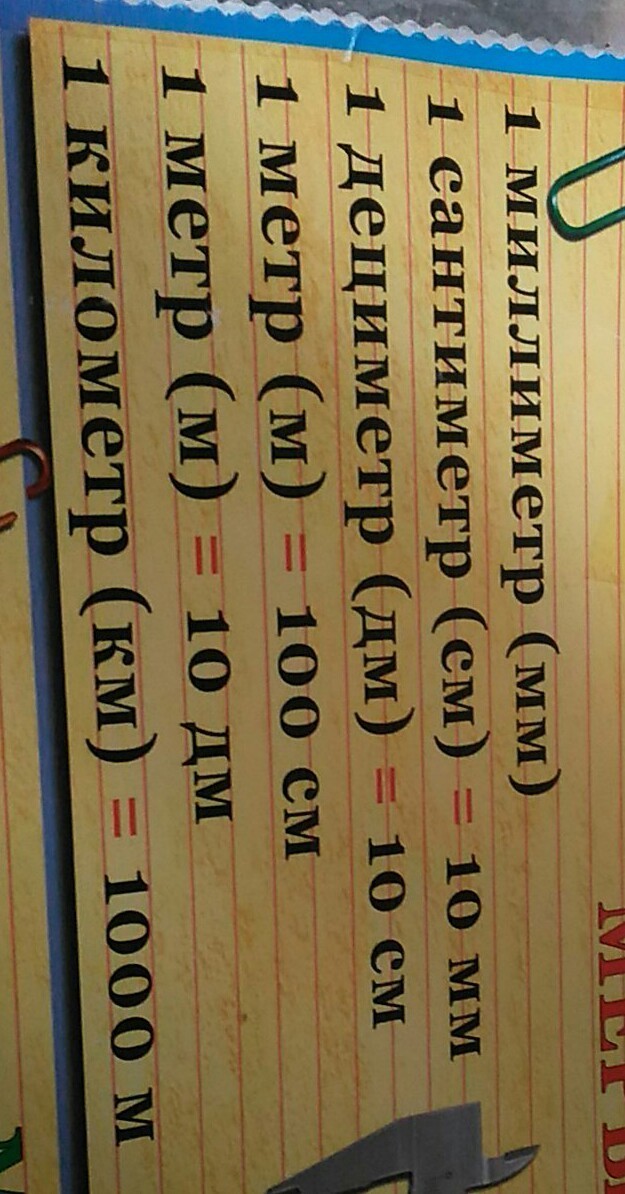 1 миллиметр (мм)
1 сантиметр (см) = 10 мм
1 дециметр (дм) = 10 см
1 метр (м) = 100 см
1 метр (м) = 10 дм
1 километр (км) = 1000 м